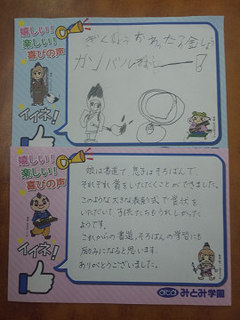 嬉しい!
楽しい!
喜びの声
イイネ!
ガンバルねー!
嬉しい!
楽しい!
喜びの声
イイネ!
娘は書道で、息子はそろばんで、
それぞれ賞をいただくことができました。
このような大きな表彰式で賞状を
いただいて子供たちもうれしかった
ようです。
これからの書道、そろばんの学習にも
励みになると思います。
ありがとうございました。
みとみ学園